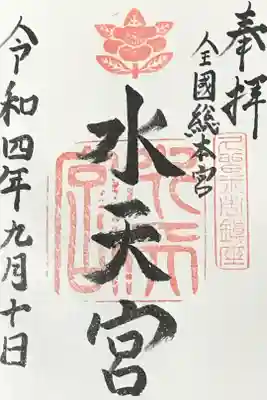 奉拝
全國総本宮
水天宮
令和四年九月十日